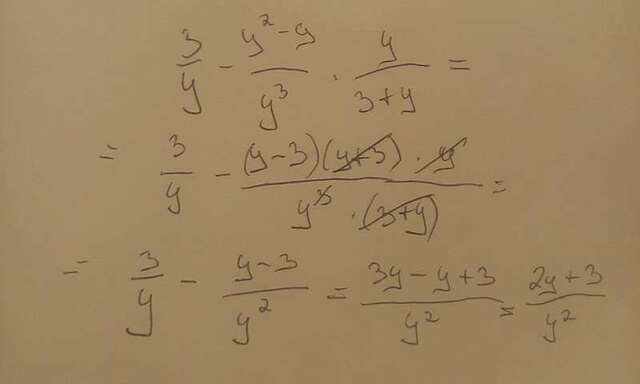 3/y - (y² - 9)/y³ · y/(3+y) =
= 3/y - ((y-3)(y+3) · y)/(y³ · (3+y)) =
= 3/y - (y-3)/y² = (3y - y + 3)/y² = (2y+3)/y²